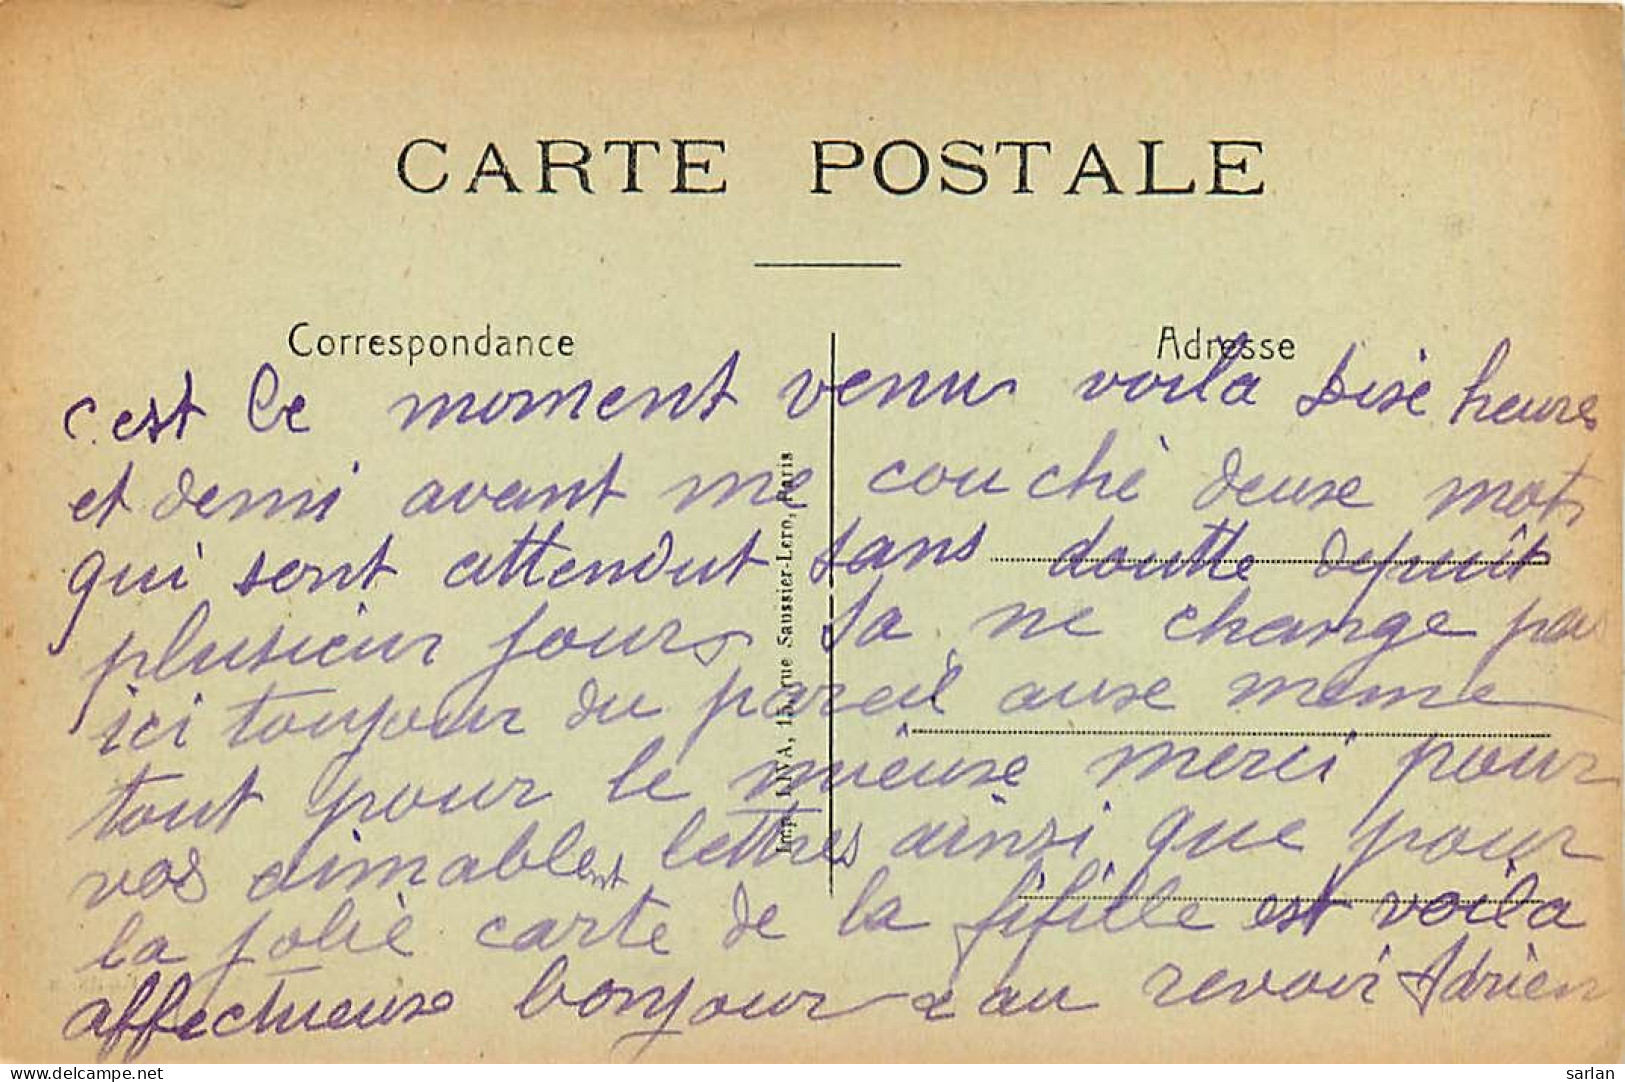 CARTE POSTALE
Correspondance
Adresse
c'est le moment venu voila sise heures
et demi avant me couché deuse mots
qui sont attendut sans doutte depuit
plusieur jours sa ne change pas
ici toujour du pareil ause meme
tout pour le mieuse merci pour
vos aimablent lettres ainsi que pour
la jolie carte de la fifille est voila
affectueuse bonjour au revoir Adrien
Imp. LIVA, 15, rue Saussier-Lero, Paris
www.delcampe.net
sarlan